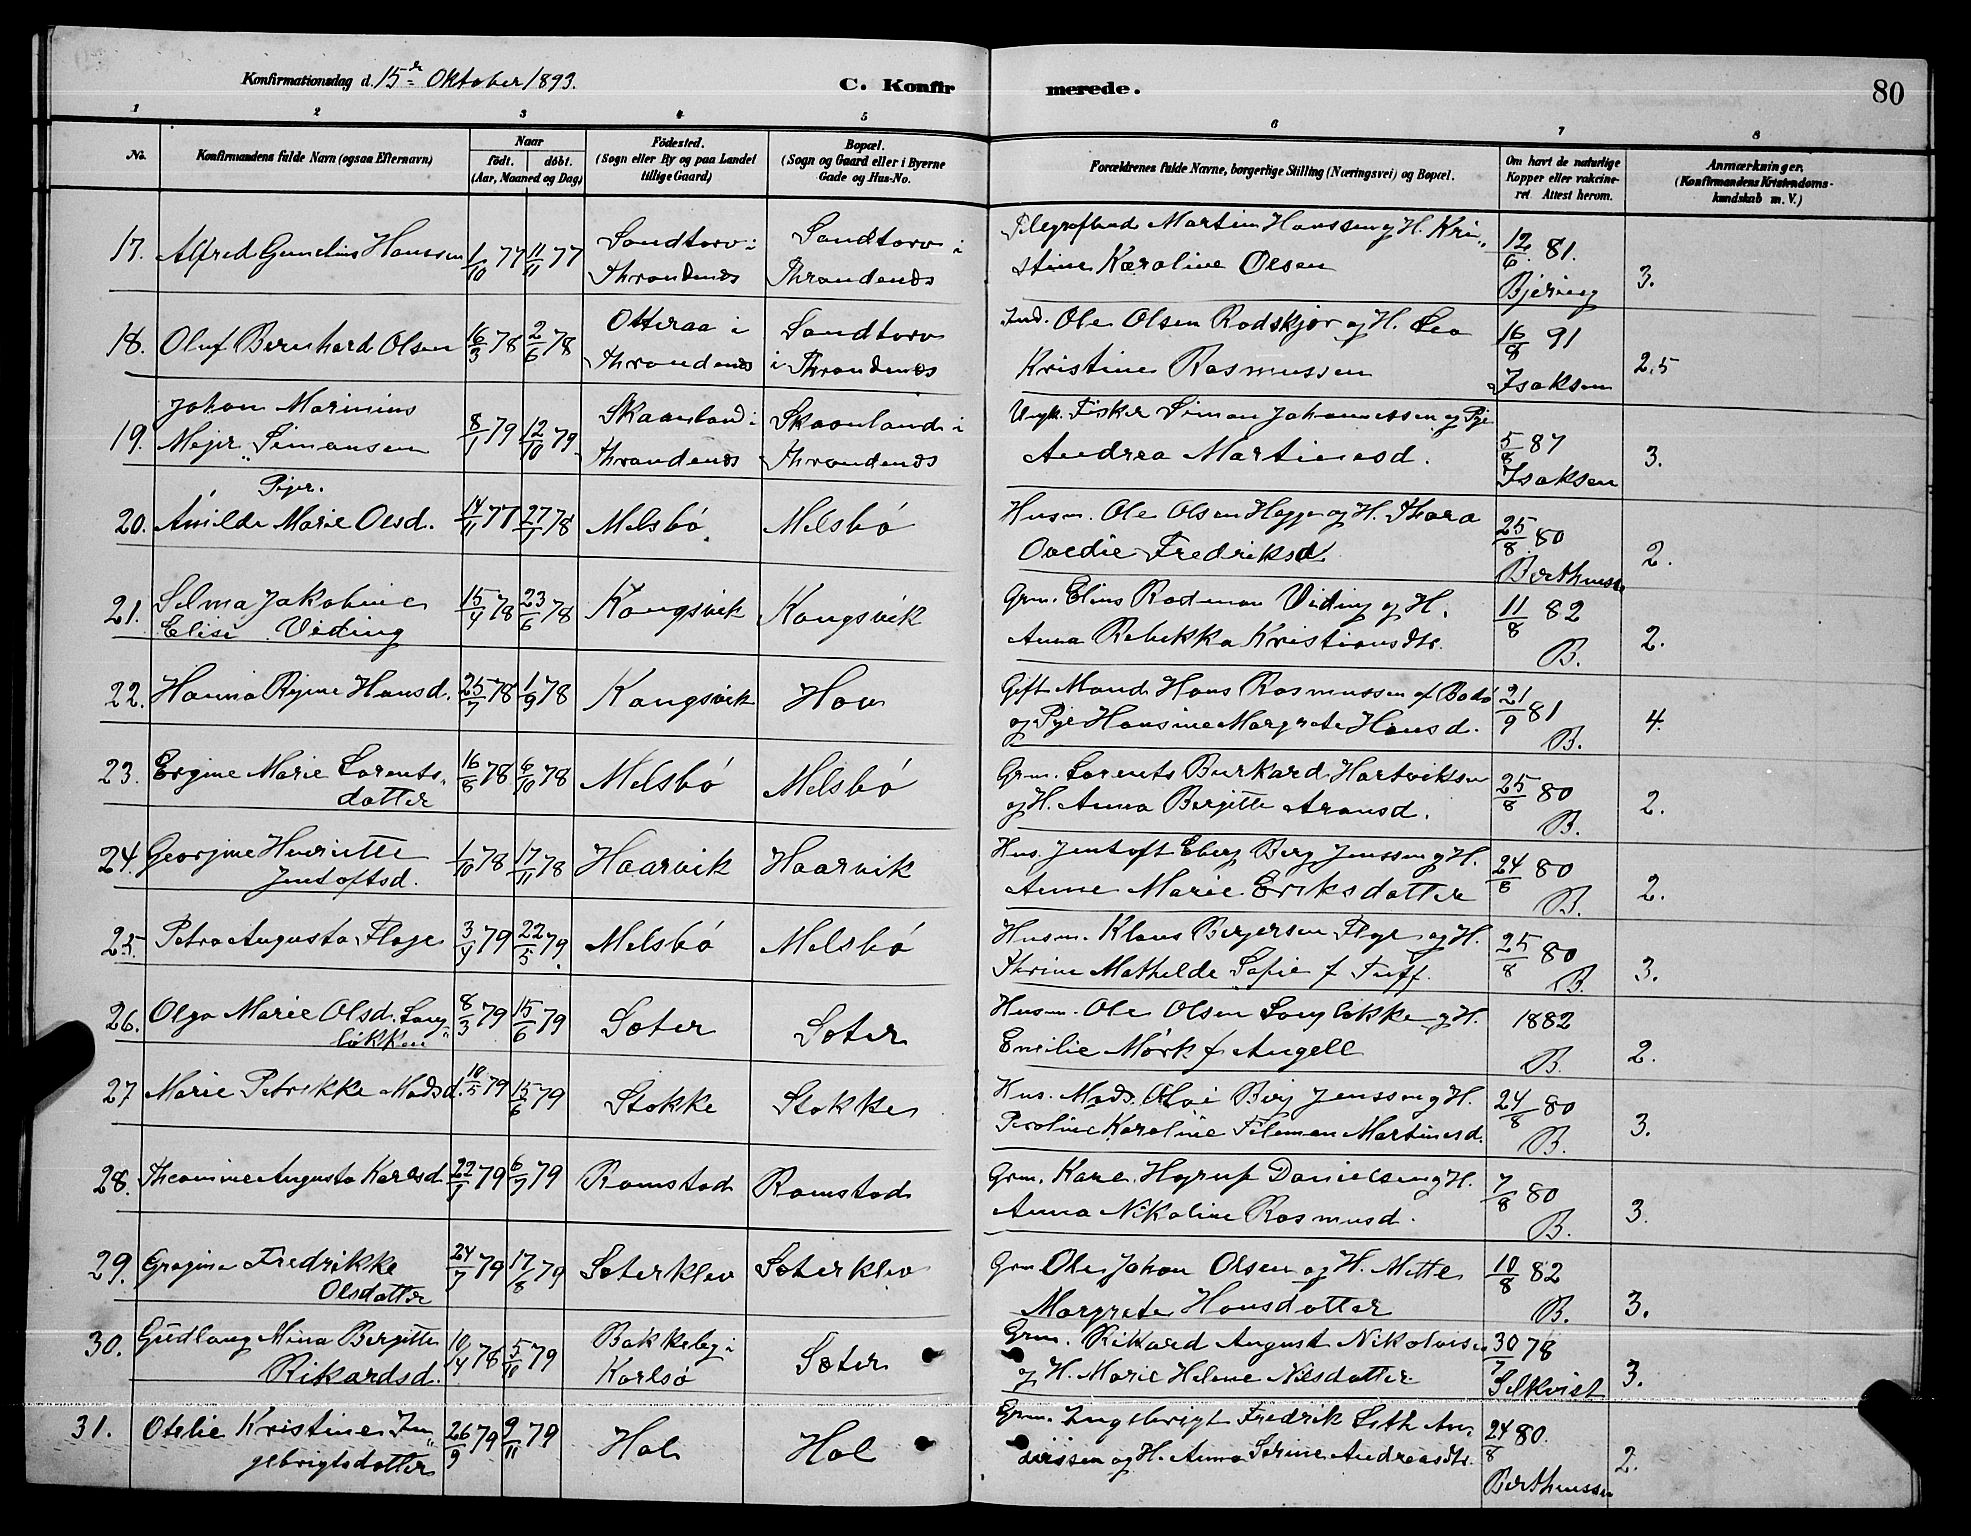 Konfirmationsdag d. 15de Oktober 1893.
C. Konfirmerede.
80
1 2 3 4 5 6 7 8
No.
Konfirmandens fulde Navn (ogsaa Efternavn)
Naar
födt. döbt.
(Aar, Maaned og Dag)
Födested.
(Sogn eller By og paa Landet
tillige Gaard)
Bopæl.
(Sogn og Gaard eller i Byerne
Gade og Hus-No.
Forældrenes fulde Navne, borgerlige Stilling (Næringsvei) og Bopæl.
Om havt de naturlige
Kopper eller vakcine-
ret Attest herom.
Anmærkninger.
(Konfirmandens Kristendoms-
kundskab m. V.)
17. Alfred Gunelius Hanssen 1/10 77 11/11 77 Sandtorv i Throndenes Sandtorv i Throndenes
Telegrafbud Martin Hanssen og H. Kri-
stine Karoline Olsen 12/6 81. Bjering 3.
18. Oluf Bernhard Olsen 16/3 78 2/6 78 Otteraa i Throndenes Sandtorv i Throndenes
Ind. Ole Olsen Rodskjær og H. Lea
Kristine Rasmussen 16/8 91 Isaksen 2.5
19. Johan Marinius
Mejer Simonsen 8/1 79 12/10 79 Skaanland i Throndenes Skaanland i Throndenes
Ungk. Fisker Simon Johannessen og Pige
Andrea Martinesd. 5/8 87 Isaksen 3.
Piger.
20. Anilde Marie Olsd. 14/11 77 27/1 78 Melsbö Melsbö
Husm. Ole Olsen Hegge og H. Thora
Ovedie Fredriksd. 25/8 80 Bertheussen 2.
21. Selma Jakobine
Elise Viding 15/4 78 23/6 78 Kongsvik Kongsvik
Grm. Elias Rodman Viding og H.
Anna Rebekka Kristiansdtr. 11/8 82 B. 2.
22. Hanna Regine Hansd. 25/7 78 1/9 78 Kongsvik Hov
Gift Mand Hans Rasmussen af Bodö
og Pige Hansine Margrete Hansd. 21/9 81 B. 4.
23. Ergine Marie Lorents-
datter 16/8 78 6/10 78 Melsbö Melsbö
Grm. Lorents Burkard Hartviksen
og H. Anna Bergitte Aronsd. 25/8 80 B. 2.
24. Georgine Henriette
Jentoftsd. 1/10 78 17/11 78 Haarvik Haarvik
Hus. Jentoft Eberg Berg Jenssen og H.
Anne Marie Eriksdatter 24/8 80 B. 2.
25. Petra Augusta Floge 3/4 79 22/5 79 Melsbö Melsbö
Husm. Klaus Bergersen Floge og H.
Thrine Mathilde Sofie f. Tuff. 25/8 80 B. 3.
26. Olga Marie Olsd. Lang-
lökken 8/3 79 15/6 79 Sæter Sæter
Husm. Ole Olsen Langlökken og H.
Emilie Mörk f. Angell 1882 B. 2.
27 Marie Petrikke Madsd. 10/5 79 15/6 79 Stokke Stokke
Hus. Mads Olai Berg Jenssen og H.
Peroline Karoline Filemon Martinesd. 24/8 80 B. 3.
28. Theomine Augusta Karlsd. 22/1 79 6/7 79 Ramstad Ramstad
Grm. Karl Hyrup Danielsen og H.
Anna Nikoline Rasmusd. 7/8 80 B. 3.
29. Gragine Fredrikke
Olsdatter 24/7 79 17/8 79 Sæterklev Sæterklev
Grm Ole Johan Olsen og H. Mette
Margrete Hansdatter 10/8 82 B. 3.
30. Gudlaug Mina Bergitte
Rikardsd. 10/4 78 5/10 79 Bakkeby i Karlsö Sæter
Grm. Rikard August Nikolaisen
og H. Marie Helene Nilsdatter 30/7 78 Selkvist 3.
31. Otelie Kristine In-
gebrigtsdatter 26/9 79 9/11 79 Hol Hol
Grm. Ingebrigt Fredrik Seth An-
derssen og H. Anna Serine Andreasdtr. 24/8 80. Bertheussen 2.